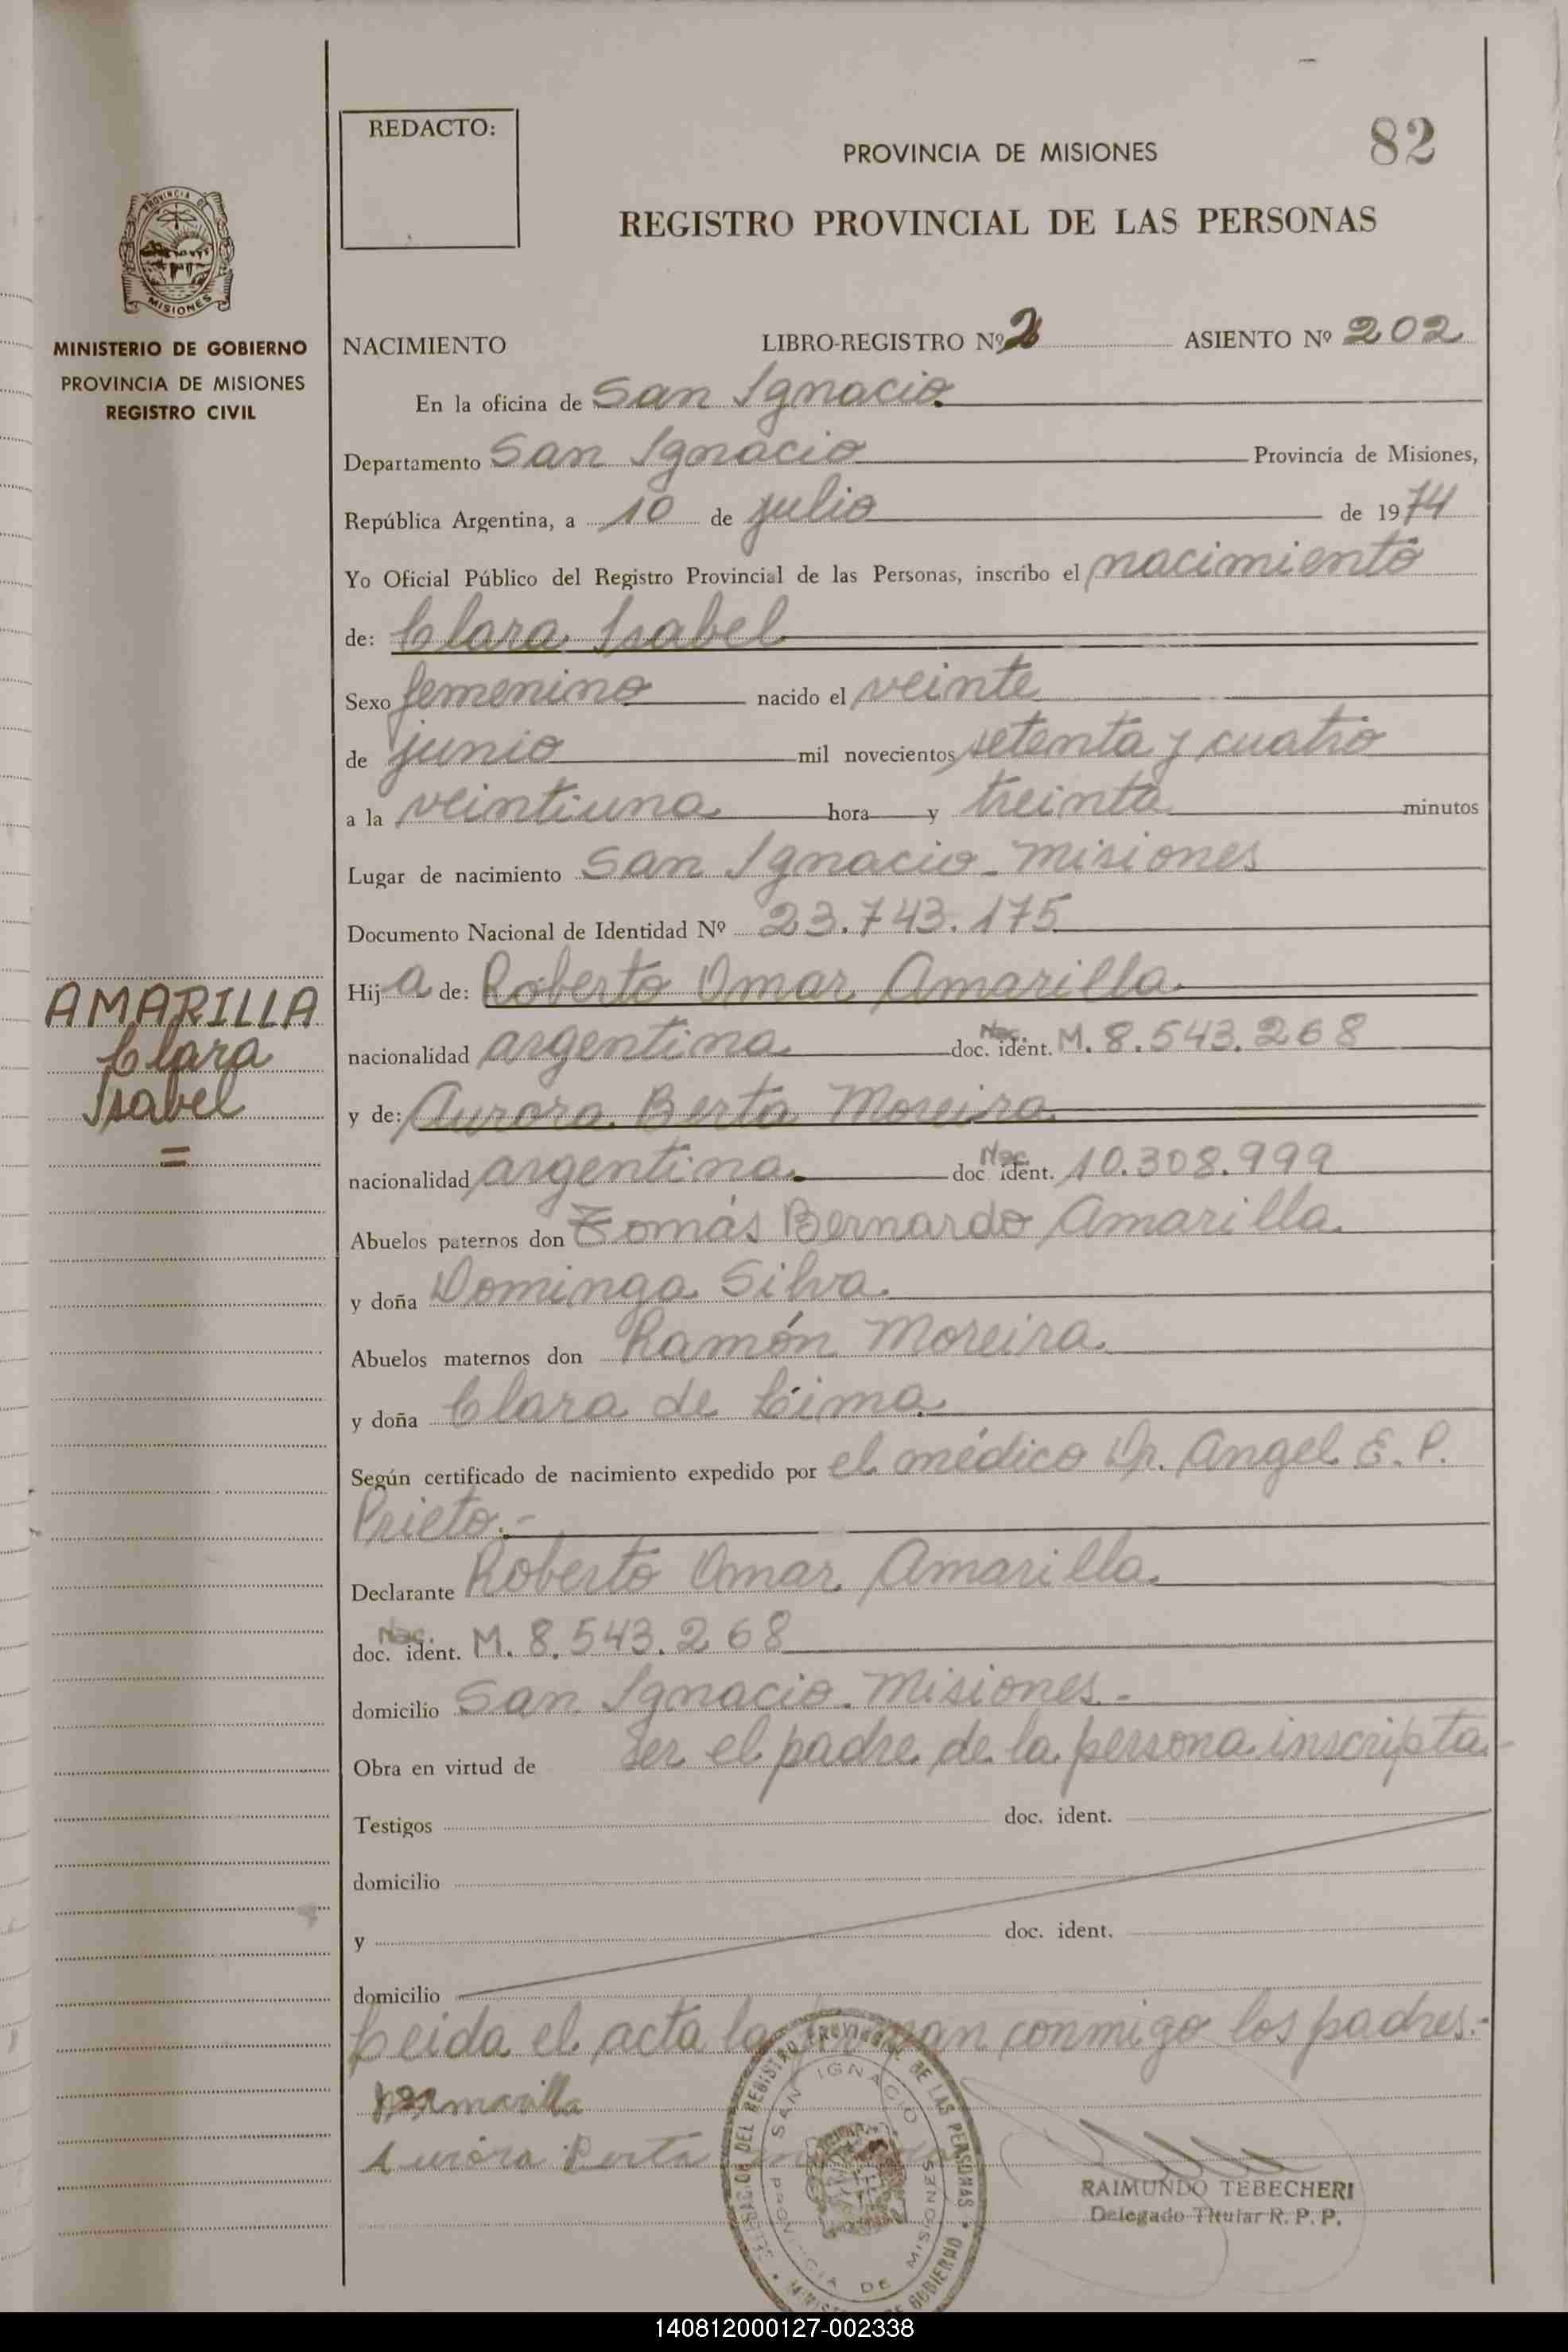 REDACTO:
82
PROVINCIA DE MISIONES
REGISTRO PROVINCIAL DE LAS PERSONAS
PROVINCIA DE
MISIONES
MINISTERIO DE GOBIERNO
PROVINCIA DE MISIONES
REGISTRO CIVIL
NACIMIENTO LIBRO-REGISTRO Nº 2 ASIENTO Nº 202
En la oficina de San Ignacio
Departamento San Ignacio Provincia de Misiones,
República Argentina, a 10 de julio de 1974
Yo Oficial Público del Registro Provincial de las Personas, inscribo el nacimiento
de: Clara Isabel
Sexo femenino nacido el veinte
de junio mil novecientos setenta y cuatro
a la veintiuna hora y treinta minutos
Lugar de nacimiento San Ignacio - Misiones
Documento Nacional de Identidad Nº 23.743.175
AMARILLA
Clara
Isabel
=
Hija de: Roberto Omar Amarilla
nacionalidad argentina doc. Nac. ident. M. 8.543.268
y de: Aurora Berta Moreira
nacionalidad argentina. doc Nac. ident. 10.308.999
Abuelos paternos don Tomás Bernardo Amarilla.
y doña Dominga Silva.
Abuelos maternos don Ramón Moreira.
y doña Clara de Lima.
Según certificado de nacimiento expedido por el médico Dr. Angel E. P.
Prieto.-
Declarante Roberto Omar Amarilla.
doc. Nac. ident. M. 8.543.268
domicilio San Ignacio. Misiones.-
Obra en virtud de ser el padre de la persona inscripta.-
Testigos doc. ident.
domicilio
y doc. ident.
domicilio
Leida el acta la firman conmigo los padres.-
Amarilla
Aurora Berta
DEL REGISTRO PROVINCIAL DE LAS PERSONAS
SAN IGNACIO
PROVINCIA DE MISIONES
GOBIERNO
RAIMUNDO TEBECHERI
Delegado Titular R. P. P.
140812000127-002338